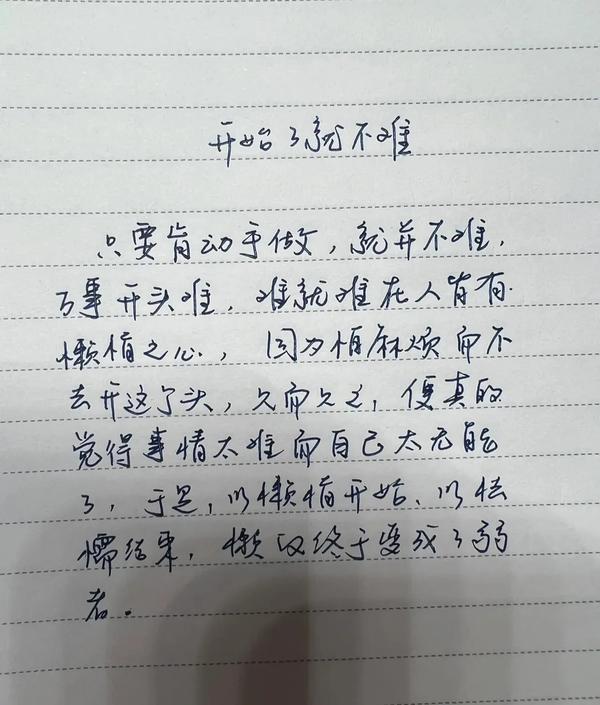 开始了就不难
只要肯动手做，就并不难，
万事开头难，难就难在人皆有
懒惰之心，因为怕麻烦而不
去开这个头，久而久之，便真的
觉得事情太难而自己太无能
了，于是，以懒惰开始、以怯
懦结束，懒汉终于变成了弱
者。